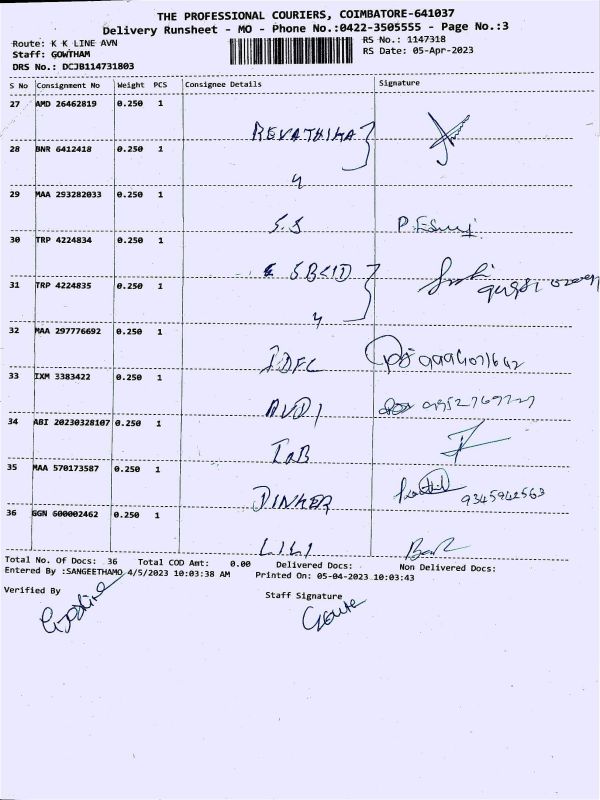 THE PROFESSIONAL COURIERS, COIMBATORE-641037
Delivery Runsheet - MO - Phone No.:0422-3505555 - Page No.:3
Route: K K LINE AVN
RS No.: 1147318
Staff: GOWTHAM
RS Date: 05-Apr-2023
DRS No.: DCJB114731803
S No Consignment No Weight PCS Consignee Details Signature
27 AMD 26462819 0.250 1
REVATHIKA
28 BNR 6412418 0.250 1
4
29 MAA 293282033 0.250 1
S.S
30 TRP 4224834 0.250 1
SBCID
31 TRP 4224835 0.250 1
4
32 MAA 297776692 0.250 1
IDFC
33 IXM 3383422 0.250 1
AVDI
34 ABI 20230328107 0.250 1
IOB
35 MAA 570173587 0.250 1
DINKER 9345942563
36 GGN 600002462 0.250 1
LILI
Total No. Of Docs: 36 Total COD Amt: 0.00 Delivered Docs: Non Delivered Docs:
Entered By :SANGEETHAMO 4/5/2023 10:03:38 AM Printed On: 05-04-2023 10:03:43
Verified By Staff Signature